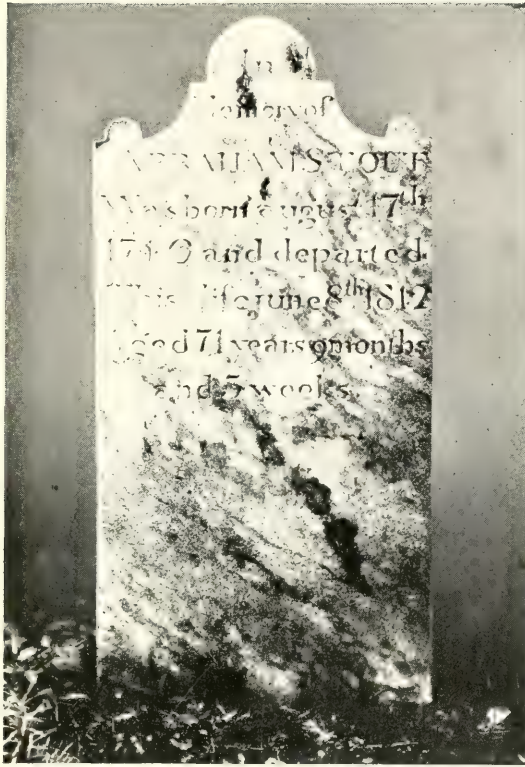 In
Memory of
ABRAHAM STOUT
Was born August 17th
1740 and departed
This life June 8th 1812
Aged 71 years 9 months
and 3 weeks